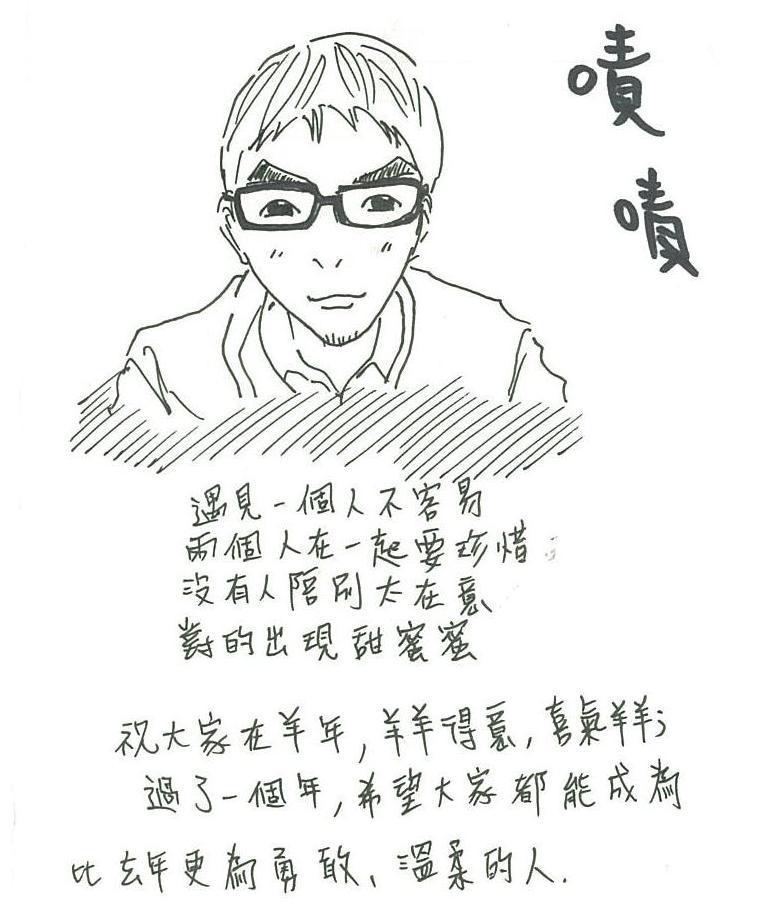 嘖
嘖
遇見一個人不容易
兩個人在一起要珍惜
沒有人陪別太在意
對的出現甜蜜蜜
祝大家在羊年,羊羊得意,喜氣羊羊;
過了一個年,希望大家都能成為
比去年更為勇敢、溫柔的人.